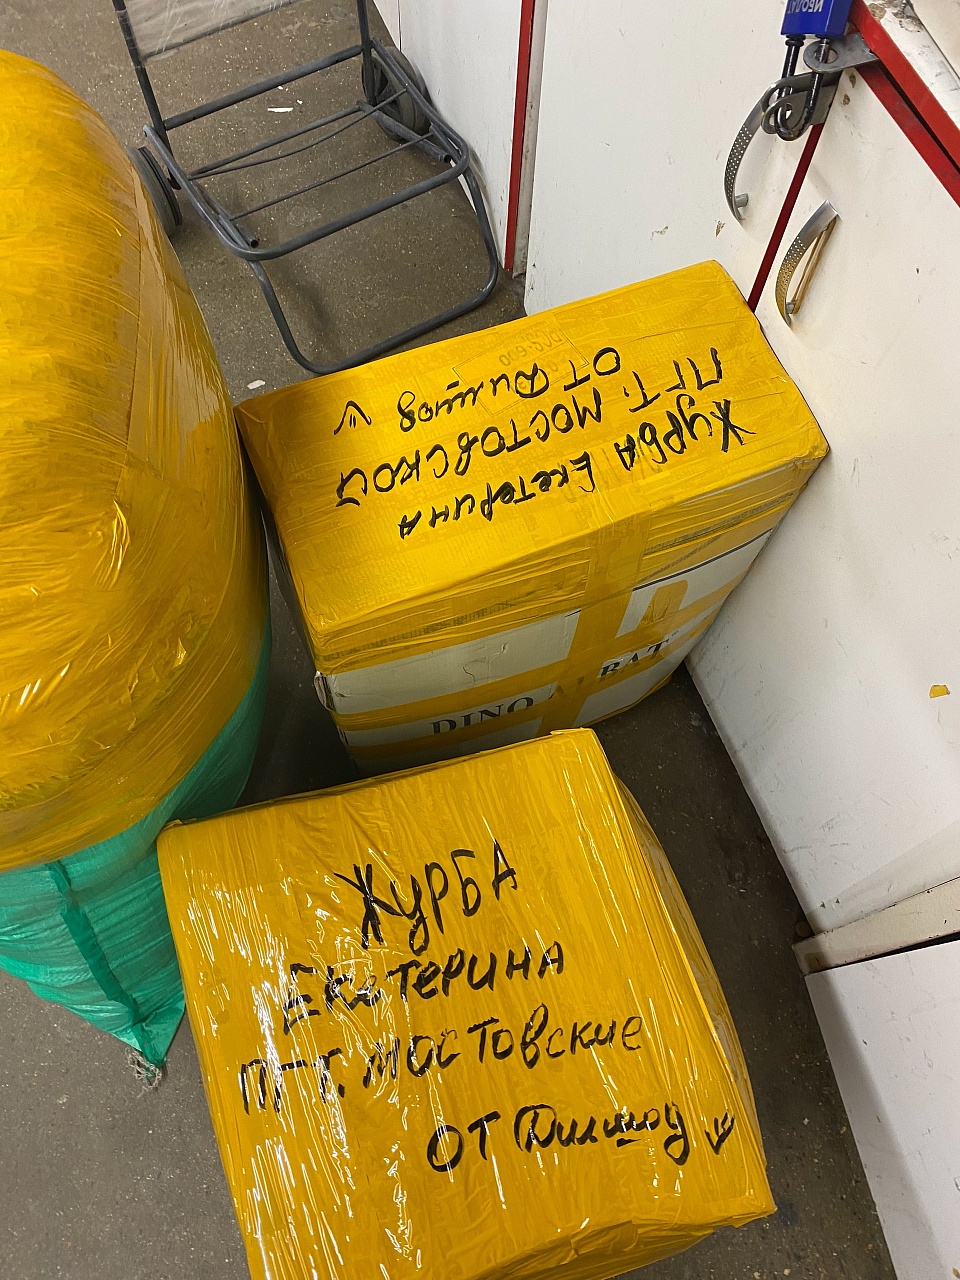 ЖУРБА ЕкетеРИНА
ПГТ. МОСТОВСКОЙ
ОТ Дилшод
DINO ALBAT
ЖУРБА
ЕкетЕРИНА
ПГТ. МОСТОвские
ОТ Дилшод